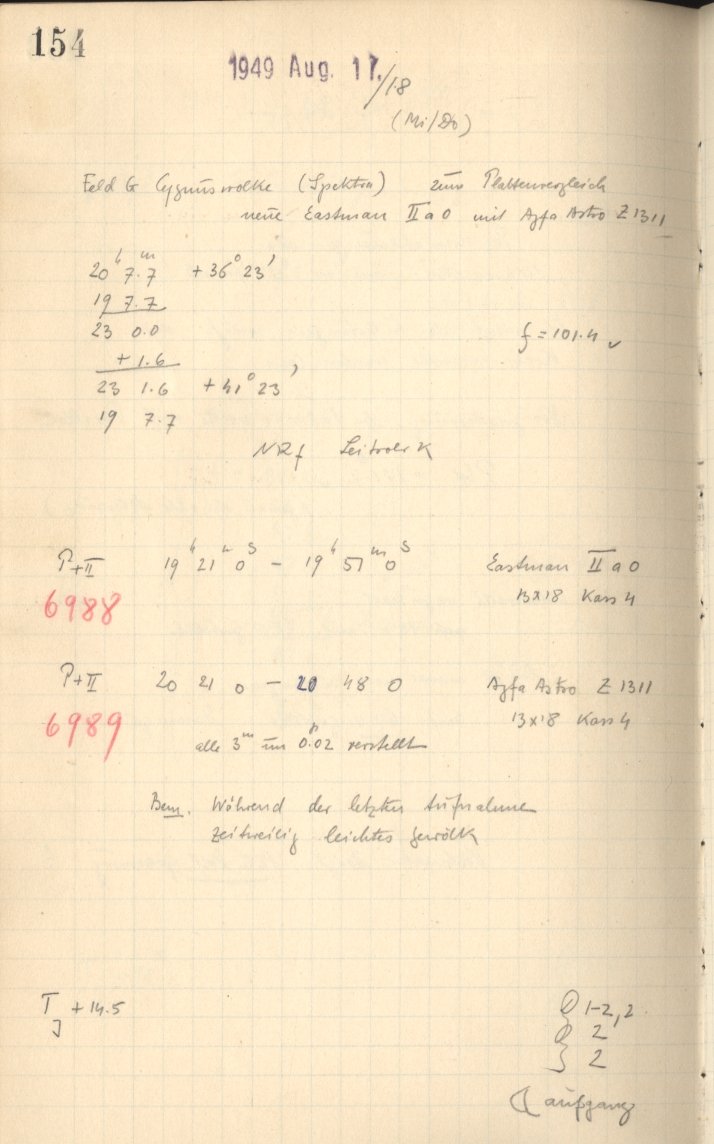 154
1949 Aug. 17./18
(Mi/Do)
Feld G Cygnuswolke (Spektren) zum Plattenvergleich
neue Eastman IIa0 mit Agfa Astro Z 1311
20ʰ 7.ᵐ7 +36° 23'
19 7.7
23 0.0
+1.6
23 1.6 +41° 23'
19 7.7
f = 101.4
NRf Leitrohr K
P+II 19ʰ 21ᵐ 0ˢ – 19ʰ 51ᵐ 0ˢ Eastman IIa0
6988 13x18 Kass 4
P+II 20 21 0 – 20 48 0 Agfa Astro Z 1311
6989 13x18 Kass 4
alle 3ᵐ um 0.02 verstellt
Bem. Während der letzten Aufnahme
zeitweilig leichtes Gewölk
T +14.5
J
1-2, 2
2
2
aufgang